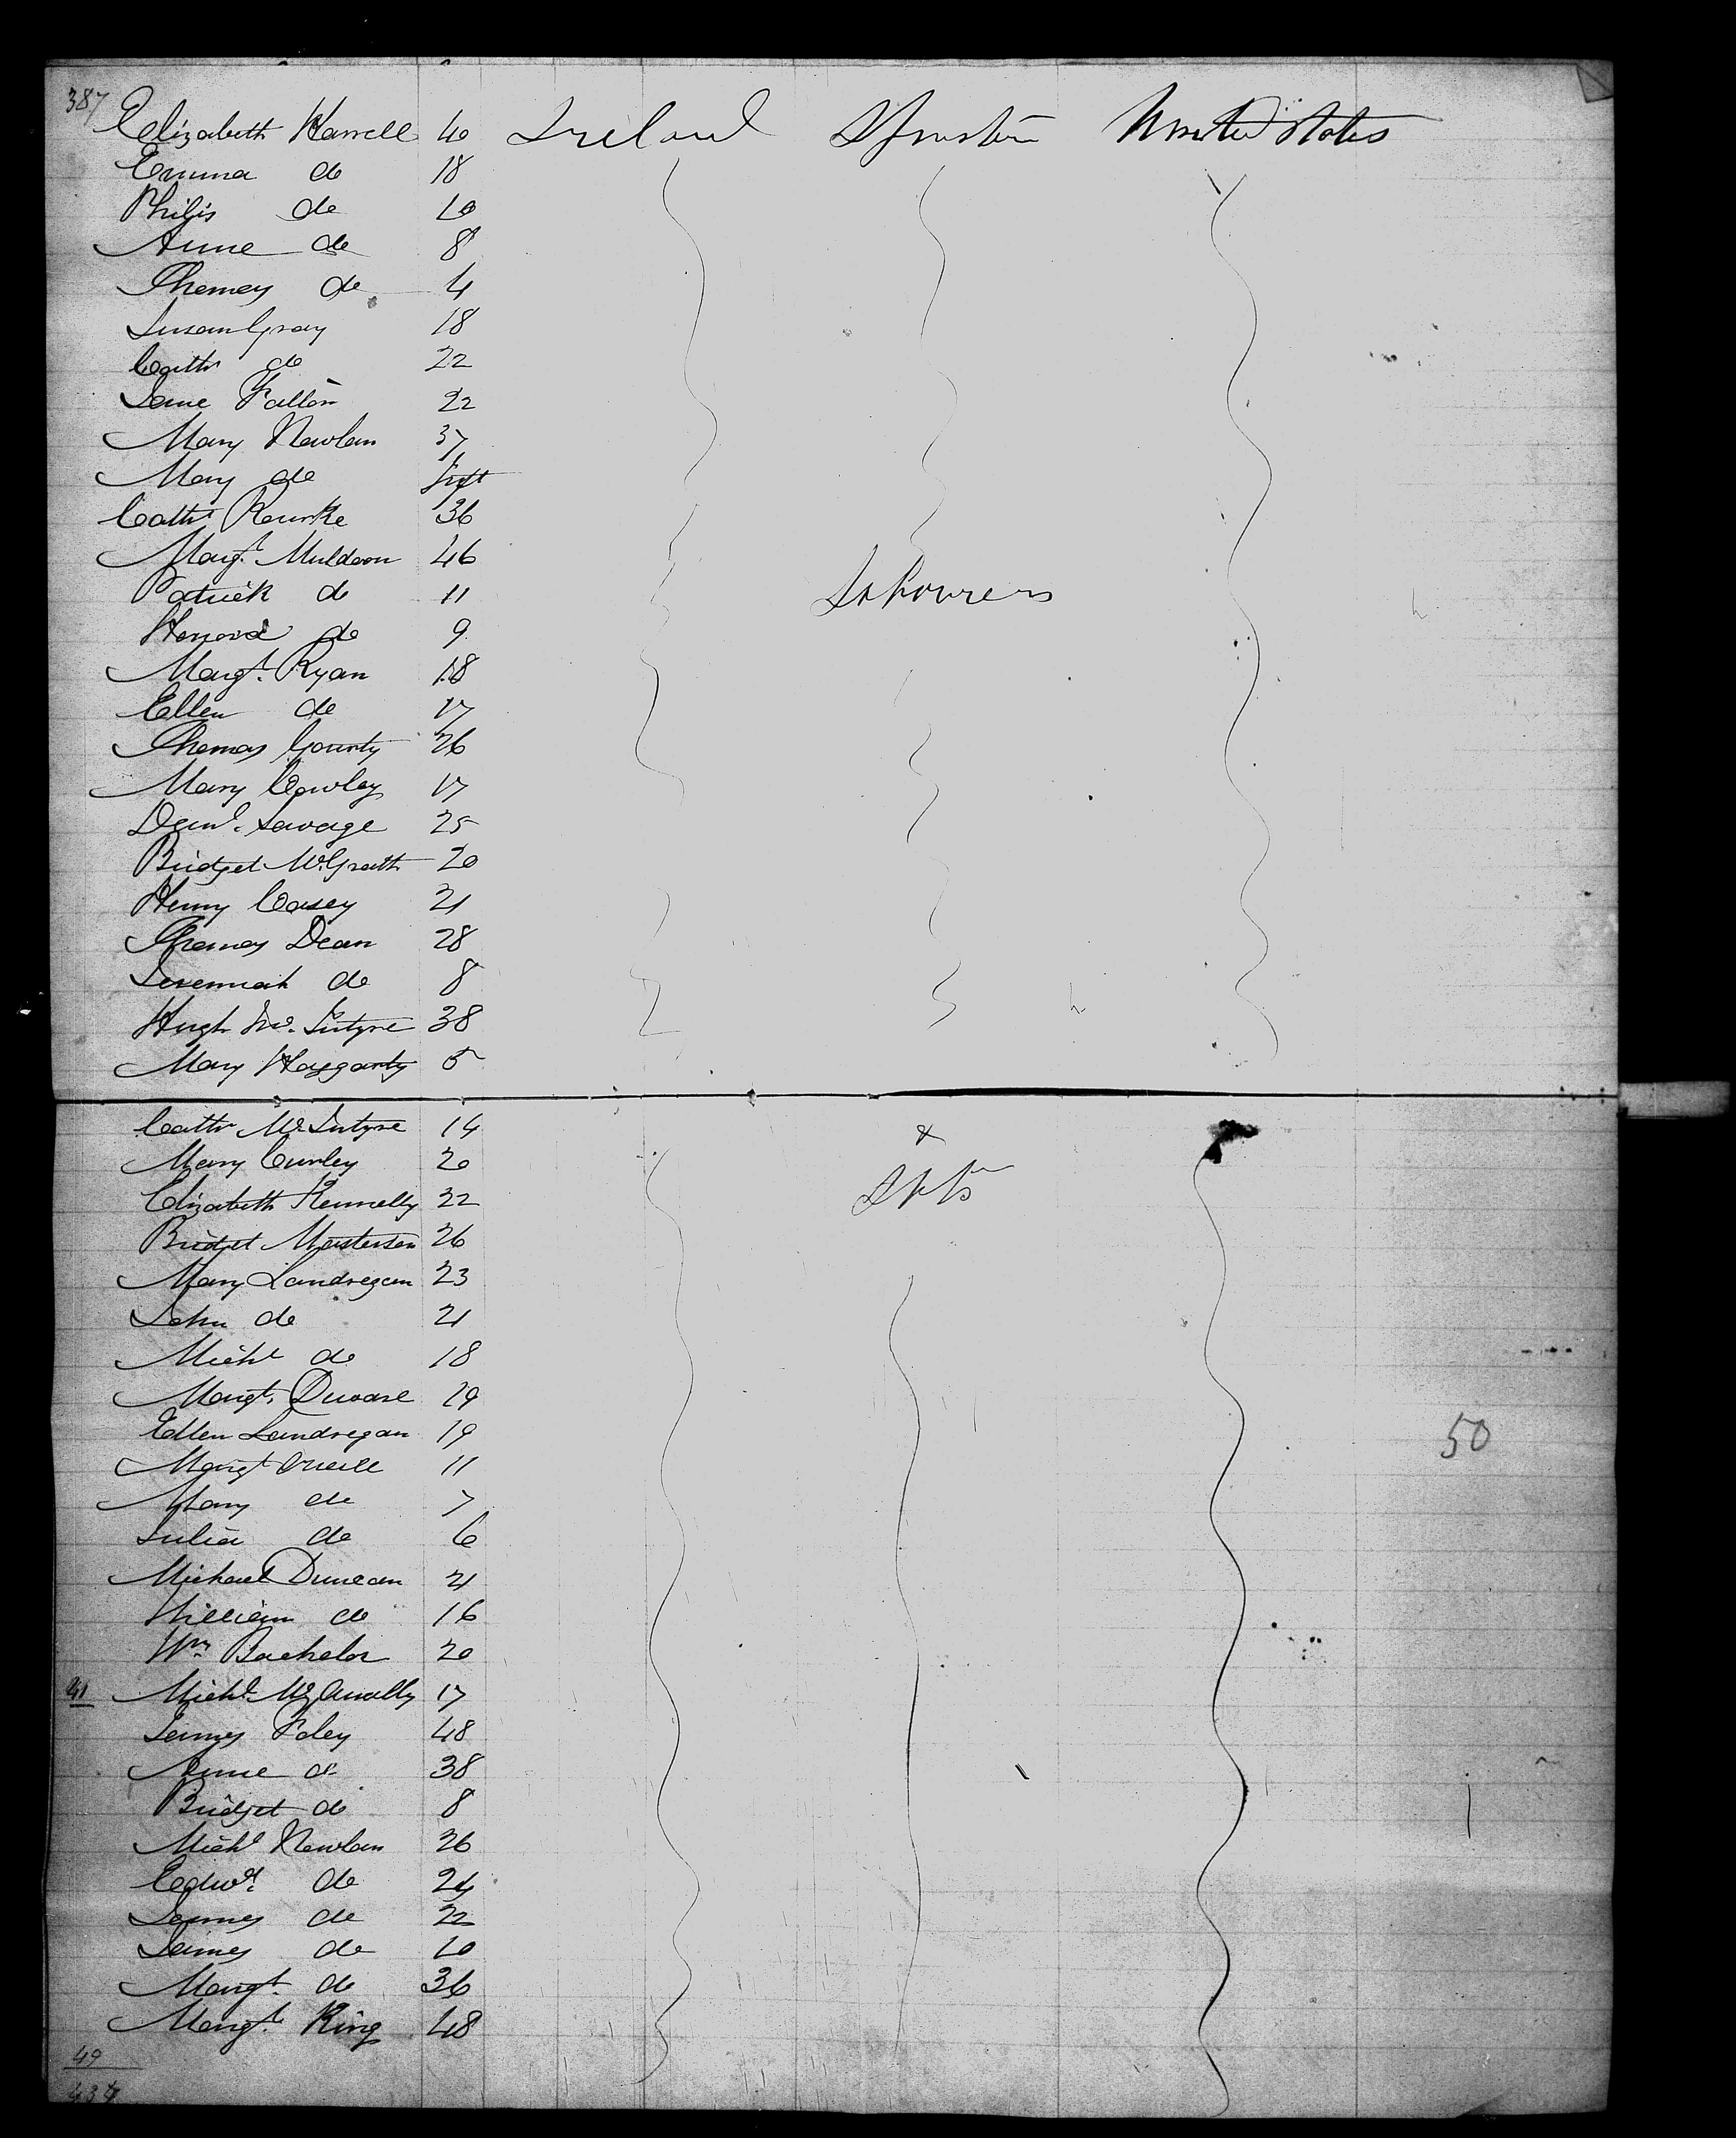 387
Elizabeth Harrell 40 Ireland Spinster United States
Emma do 18
Philis do 10
Anne do 8
Thomas do 4
Susan Gray 18
Cath do 22
Jane Fallon 22
Mary Nowlan 37
Mary do Inft
Cath Rourke 36
Margt Muldoon 46
Patrick do 11 Labourers
Honora do 9
Margt Ryan 18
Ellen do 17
Thomas Gourty 26
Mary Cowley 17
Danl Savage 25
Bridget McGrath 20
Henry Casey 21
Thomas Dean 28
Jeremiah do 8
Hugh McIntyre 38
Mary Haggarty 5
Cath McIntyre 14 &
Mary Curley 20
Elizabeth Kennelly 22
Bridget Masterson 26
Mary Landregan 23
John do 21
Michl do 18
Margt 29
Ellen Landregan 19 50
Margt Oneill 11
Mary do 7
Julia do 6
Michael Duncan 21
William do 16
Wm Bachelor 20
41 Michl McAnally 17
James Foley 48
Anne do 38
Bridget do 8
Michl Nowlan 26
Edwd do 24
James do 22
James do 10
Margt do 36
Margt King 48
49